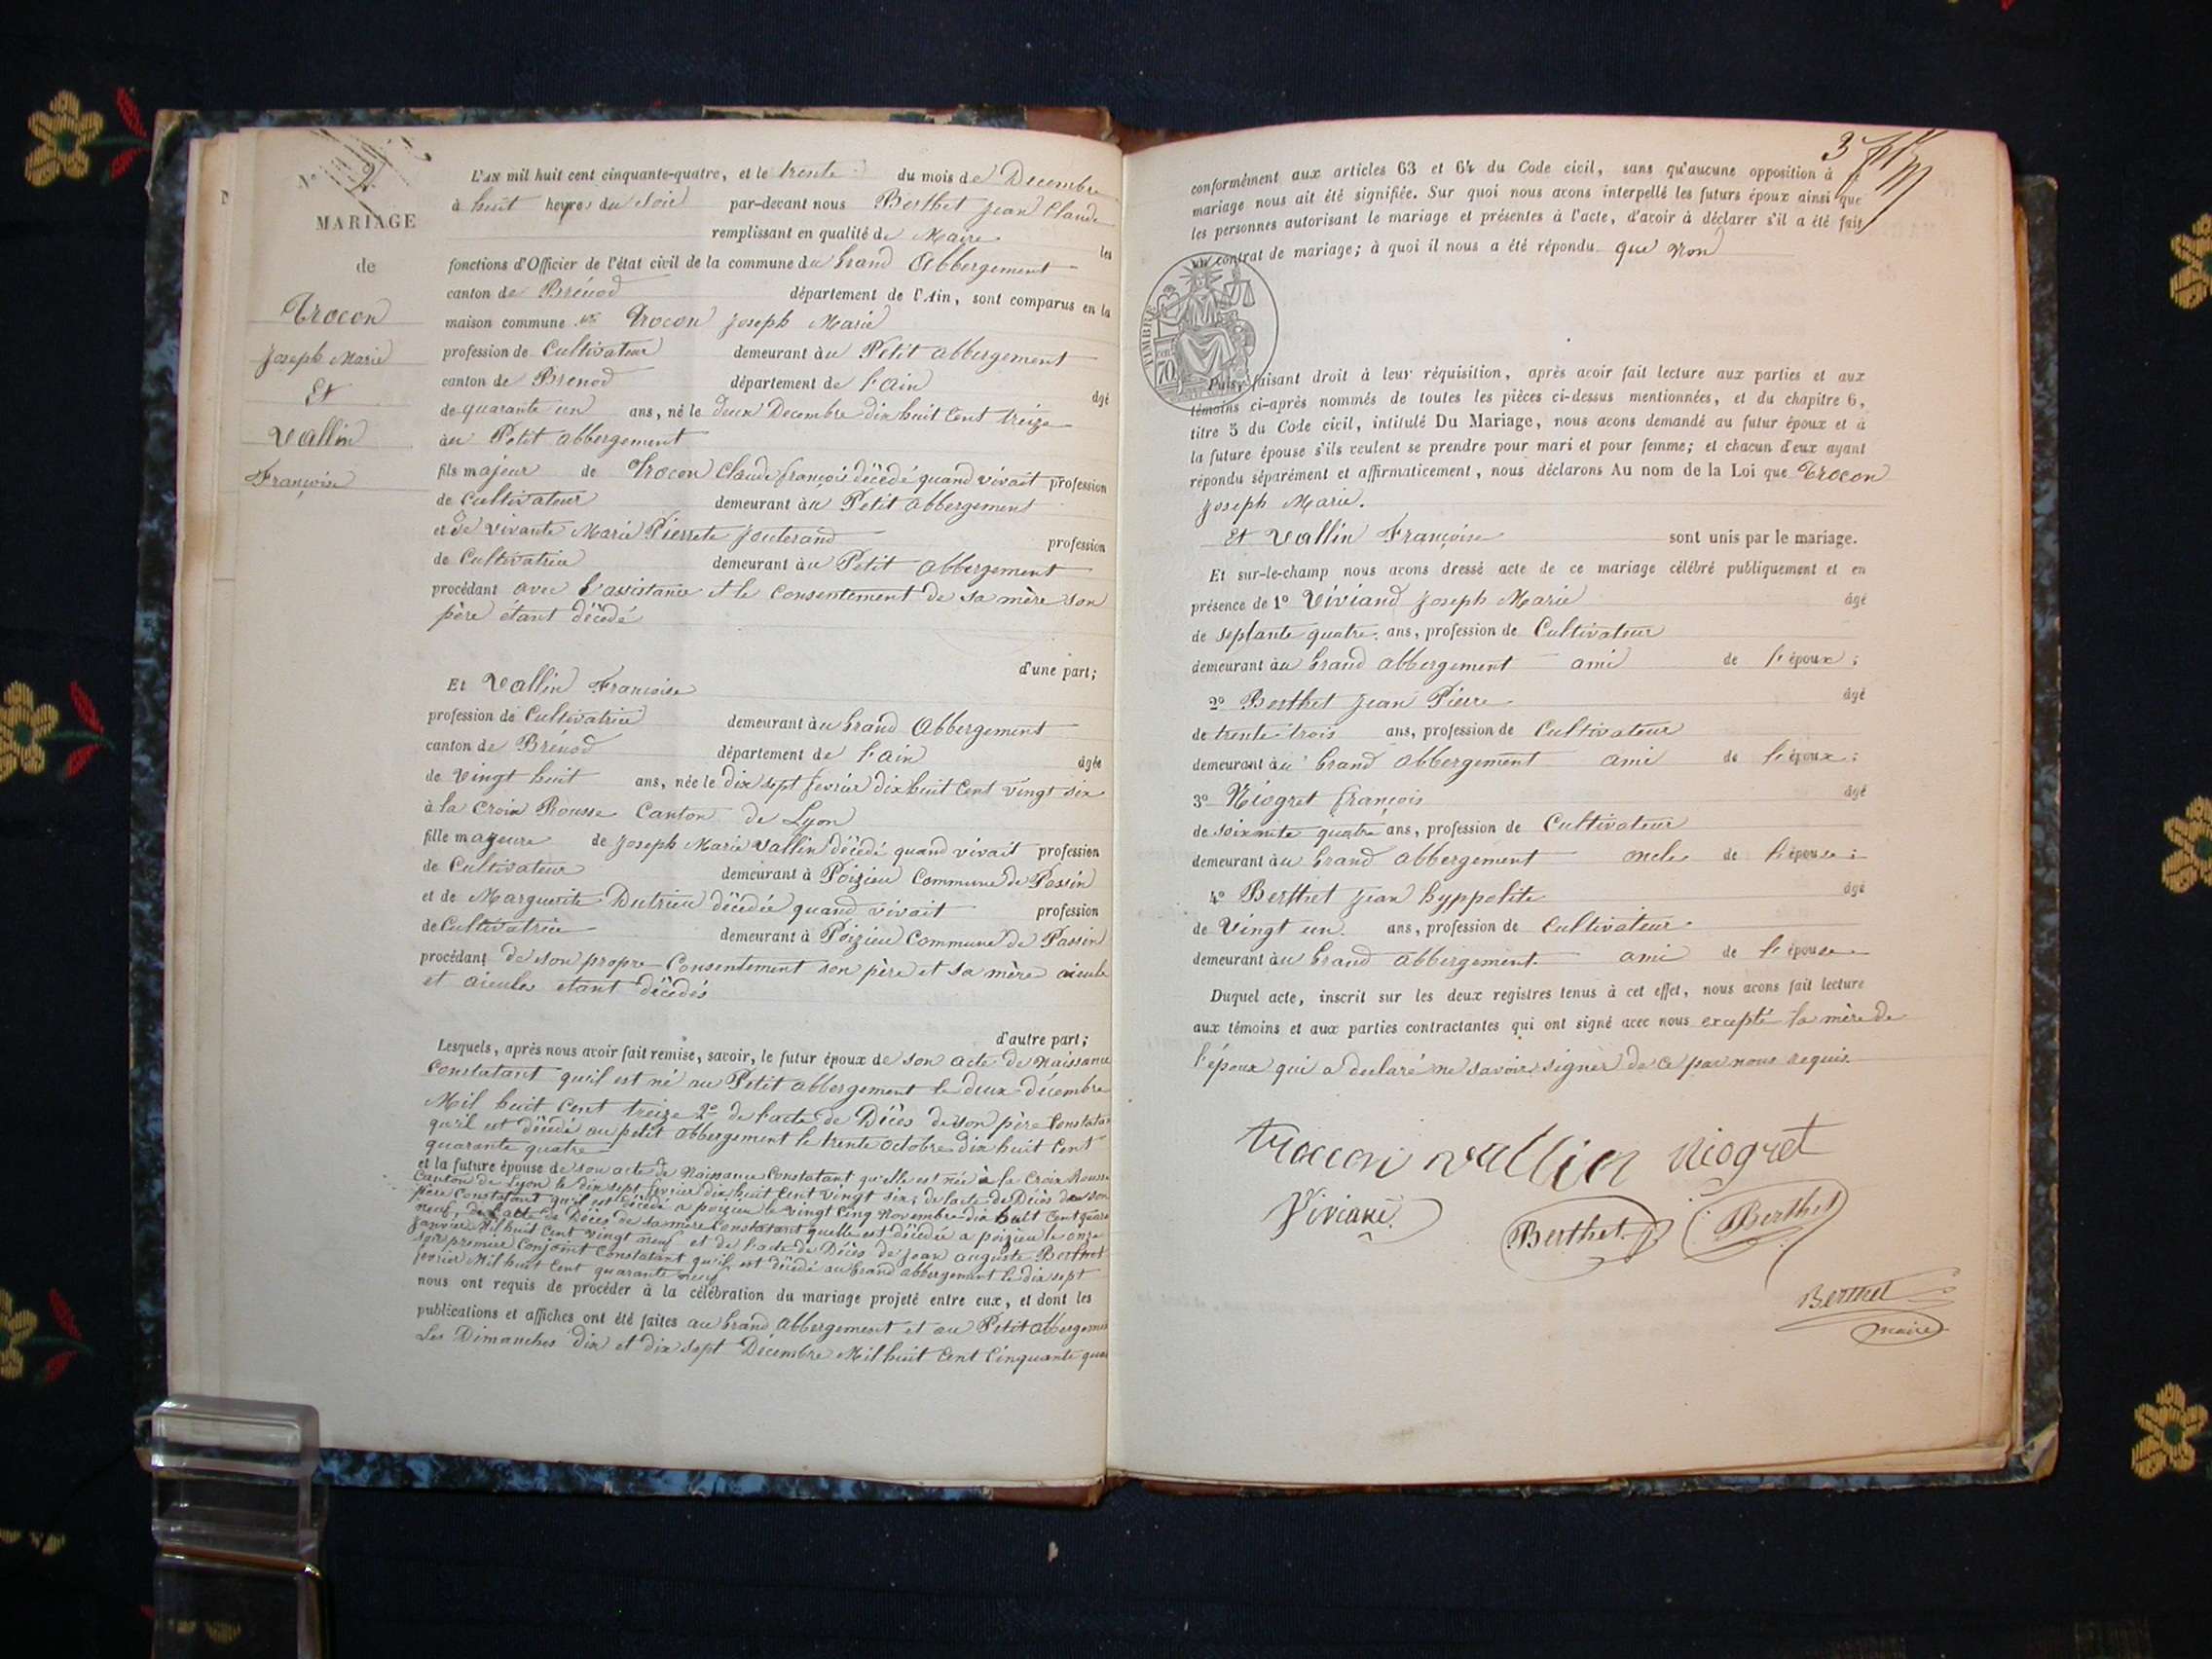 N° 2
MARIAGE
de
Trocon
Joseph Marie
Et
Vallin
Françoise
L'AN mil huit cent cinquante-quatre, et le trente du mois de Décembre
à huit heures du soir par-devant nous Berthet Jean Claude
remplissant en qualité de Maire les
fonctions d'Officier de l'état civil de la commune du Grand Abbergement
canton de Brénod département de l'Ain, sont comparus en la
maison commune Trocon Joseph Marie
profession de Cultivateur demeurant au Petit abbergement
canton de Brenod département de l'ain âgé
de quarante un ans, né le deux Decembre dix huit Cent treize
au Petit abbergement
fils majeur de Trocon Claude françois décédé quand vivait profession
de Cultivateur demeurant au Petit abbergement
et de vivante Marie Pierrete Jouterand profession
de Cultivatrice demeurant au Petit abbergement
procédant avec l'assistance et le Consentement de sa mère son
père étant décédé
d'une part;
Et Vallin Françoise
profession de Cultivatrice demeurant au Grand Abbergement
canton de Brénod département de l'ain âgée
de Vingt huit ans, née le dix sept fevrier dix huit Cent vingt six
à la Croix Rousse Canton de Lyon
fille mayeure de Joseph Marie Vallin décédé quand vivait profession
de Cultivateur demeurant à Poizieu Commune de Passin
et de Marguerite Dutrieu décédée quand vivait profession
de Cultivatrice demeurant à Poizieu Commune de Passin
procédant de son propre Consentement son père et sa mère aieuls
et aieules etant décédés
d'autre part;
Lesquels, après nous avoir fait remise, savoir, le futur époux de son acte de Naissance
Constatant qu'il est né au Petit abbergement le deux décembre
Mil huit Cent treize 2° de l'acte de Décès de son père Constatan
qu'il est décédé au petit abbergement le trente octobre dix huit Cent
quarante quatre
et la future épouse de son acte de Naissance Constatant qu'elle est née à la Croix Rousse
Canton de Lyon le dix sept fevrier dix huit Cent vingt six; de l'acte de Décès de son
père Constatant qu'il est décédé a poizieu le vingt Cinq Novembre dix huit Cent
neuf, de l'acte de Décès de sa mère Constatant quelle est décédée a poizieu le onze
Janvier Mil huit Cent vingt neuf et de l'acte de Décès de Jean auguste Berthet
son premier Conjoint Constatant qu'il est décédé au Grand abbergement le dix sept
fevrier Mil huit Cent quarante neuf
nous ont requis de procéder à la célébration du mariage projeté entre eux, et dont les
publications et affiches ont été faites au Grand Abbergement et au Petit abbergemen
Les Dimanches dix et dix sept Décembre Mil huit Cent Cinquante qua
3
conformément aux articles 63 et 64 du Code civil, sans qu'aucune opposition à ce
mariage nous ait été signifiée. Sur quoi nous avons interpellé les futurs époux ainsi que
les personnes autorisant le mariage et présentes à l'acte, d'avoir à déclarer s'il a été fait
un contrat de mariage; à quoi il nous a été répondu que Non
TIMBRE
70
Puis, faisant droit à leur réquisition, après avoir fait lecture aux parties et aux
témoins ci-après nommés de toutes les pièces ci-dessus mentionnées, et du chapitre 6,
titre 5 du Code civil, intitulé Du Mariage, nous avons demandé au futur époux et à
la future épouse s'ils veulent se prendre pour mari et pour femme; et chacun d'eux ayant
répondu séparément et affirmativement, nous déclarons Au nom de la Loi que Trocon
Joseph Marie.
Et Vallin Françoise sont unis par le mariage.
Et sur-le-champ nous avons dressé acte de ce mariage célébré publiquement et en
présence de 1° Viviand Joseph Marie âgé
de septante quatre ans, profession de Cultivateur
demeurant au Grand abbergement ami de l'époux;
2° Berthet Jean Pierre âgé
de trente trois ans, profession de Cultivateur
demeurant au Grand abbergement ami de l'époux;
3° Niogret françois âgé
de soixante quatre ans, profession de Cultivateur
demeurant au Grand abbergement oncle de l'épouse;
4° Berthet Jean hyppolite âgé
de Vingt un ans, profession de Cultivateur
demeurant au Grand abbergement ami de l'épouse
Duquel acte, inscrit sur les deux registres tenus à cet effet, nous avons fait lecture
aux témoins et aux parties contractantes qui ont signé avec nous excepté la mère de
l'époux qui a declaré ne savoir signer de ce par nous requis.
troccon vallin Niogret
Viviand Berthet Berthet
Berthet
maire